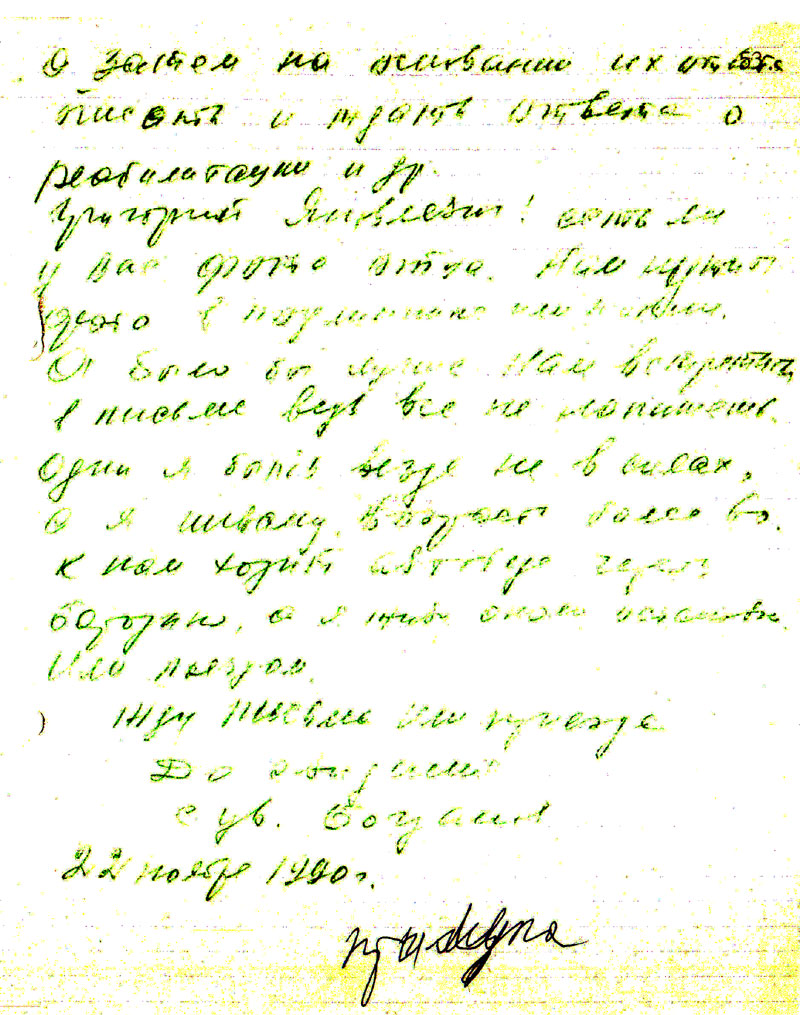 а затем на основании их ответа
писать и ждать ответа о
реабилитации и др.
Григорий Яковлевич! есть ли
у вас фото отца. Нам нужны
фото в подлиннике или копии.
А было бы лучше нам встретиться
в письме ведь все не напишешь.
Один я быть везде не в силах,
а я инвалид, возраст более
к нам ходит автобус через
а я живу около
или поездом.
Жду письма или приезда
До свидания
с ув. Богданов
22 ноября 1990 г.